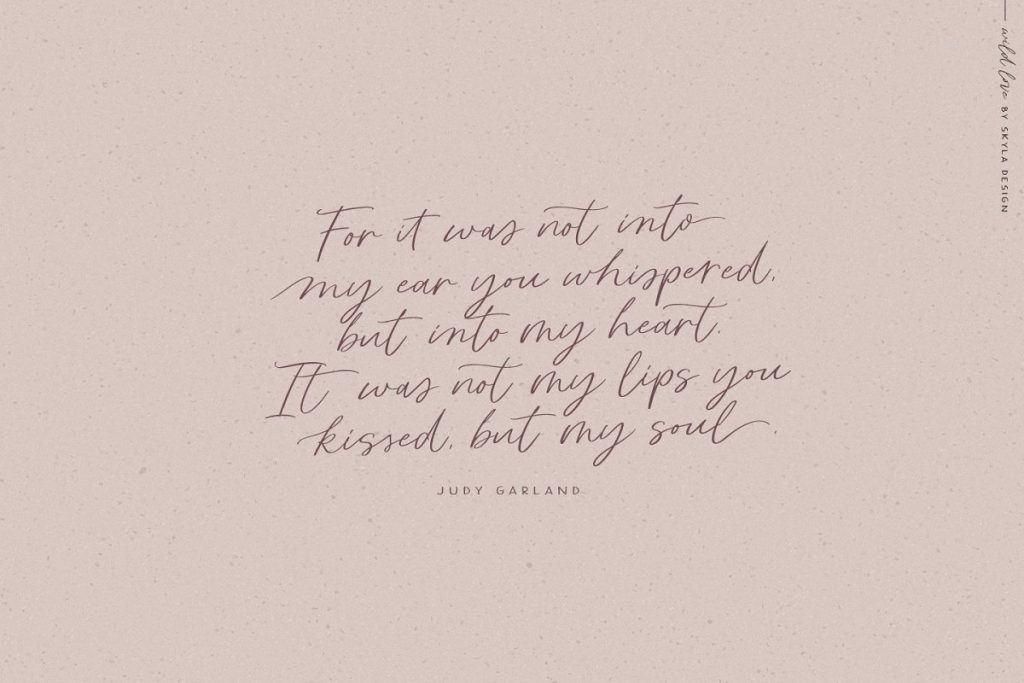 For it was not into
my ear you whispered,
but into my heart.
It was not my lips you
kissed, but my soul.
JUDY GARLAND
wild love BY SKYLA DESIGN